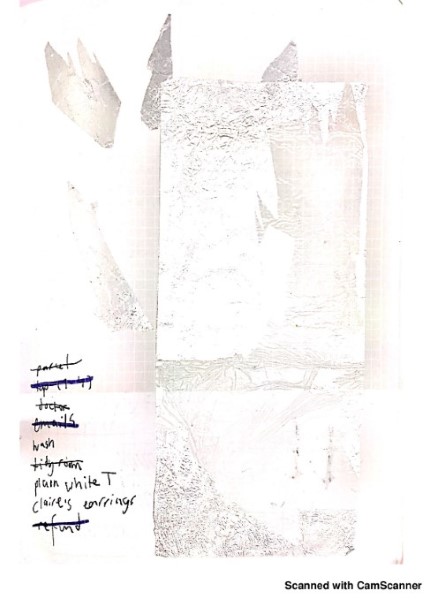 parcel
doctor
emails
wash
tidy room
plain white T
claire's earrings
refund
Scanned with CamScanner